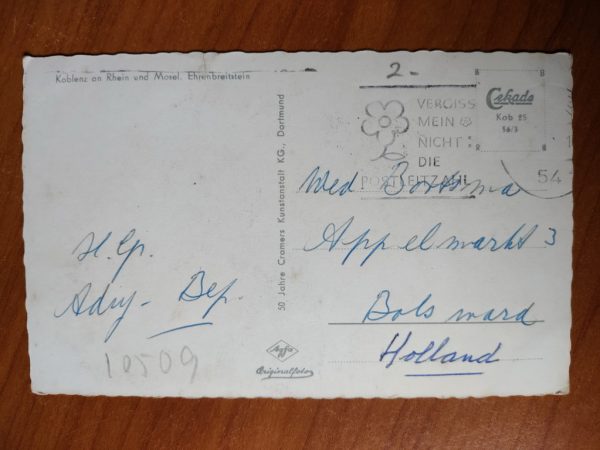 Koblenz an Rhein und Mosel. Ehrenbreitstein
2.-
VERGISS
MEIN
NICHT
DIE
POSTLEITZAHL
Cekade
Kob 85
56/3
54
Wed Bootsma
Appelmarkt 3
Bolsward
Holland
H. Gr.
Ady - Bep.
10509
50 Jahre Cramers Kunstanstalt KG., Dortmund
Agfa
Originalfoto